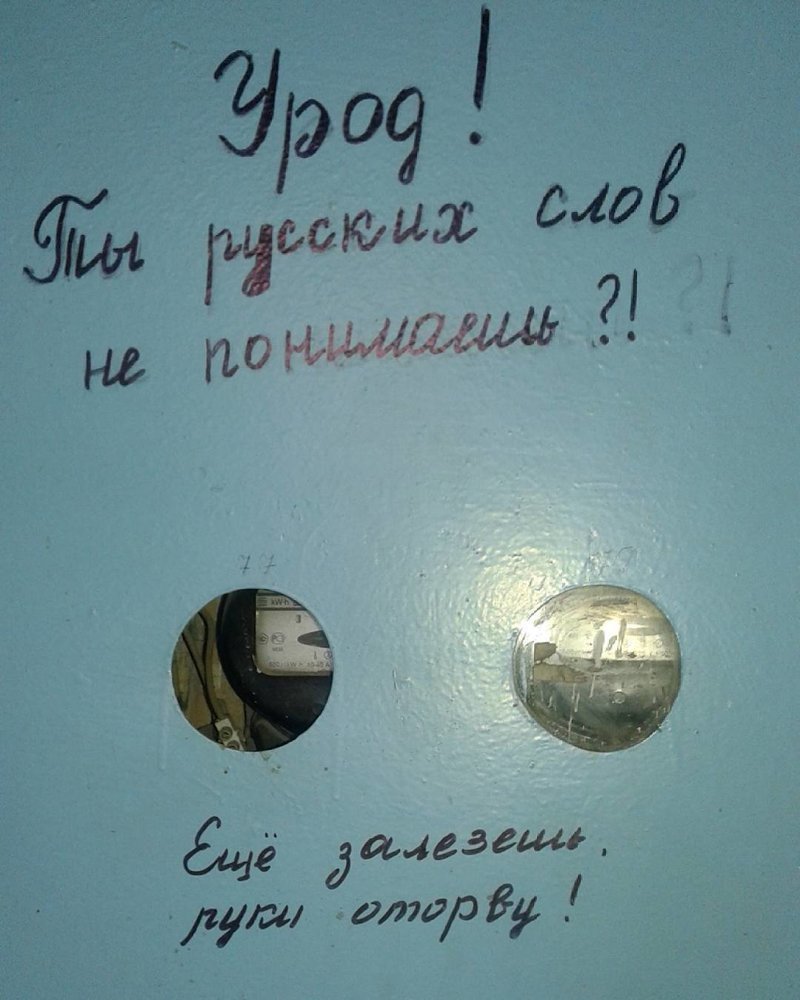 Урод!
Ты русских слов
не понимаешь?!
?!
77
kW·h
Ещё залезешь,
руки оторву!